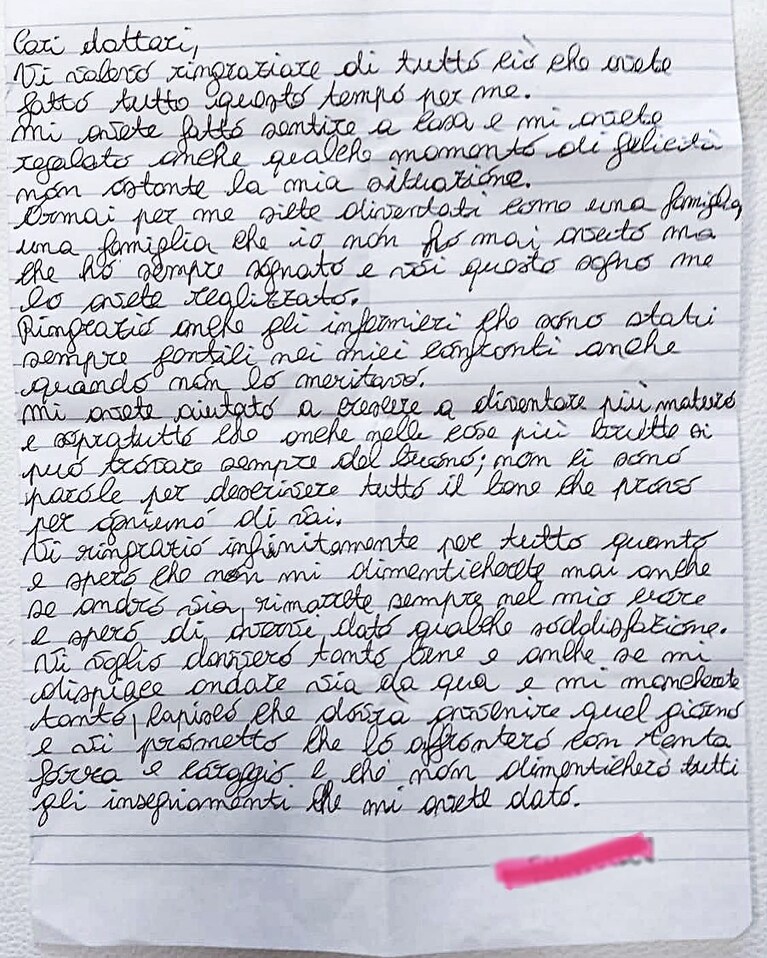 Cari dottori,
Vi volevo ringraziare di tutto ciò che avete
fatto tutto questo tempo per me.
Mi avete fatto sentire a casa e mi avete
regalato anche qualche momento di felicità
non ostante la mia situazione.
Ormai per me siete diventati come una famiglia,
una famiglia che io non ho mai avuto ma
che ho sempre sognato e voi questo sogno me
lo avete realizzato.
Ringrazio anche gli infermieri che sono stati
sempre gentili nei miei confronti anche
quando non lo meritavo.
Mi avete aiutato a crescere a diventare più maturo
e sopratutto che anche nelle cose più brutte si
può trovare sempre del buono; non ci sono
parole per descrivere tutto il bene che provo
per ogniuno di voi.
Vi ringrazio infinitamente per tutto quanto
e spero che non mi dimenticherete mai anche
se andrò via, rimarrete sempre nel mio cuore
e spero di avervi dato qualche soddisfazione.
Vi voglio davvero tanto bene e anche se mi
dispiace andare via da qua e mi mancherete
tanto, capisco che dovrà avvenire quel giorno
e vi prometto che lo affronterò con tanta
forza e coraggio e che non dimenticherò tutti
gli insegniamenti che mi avete dato.